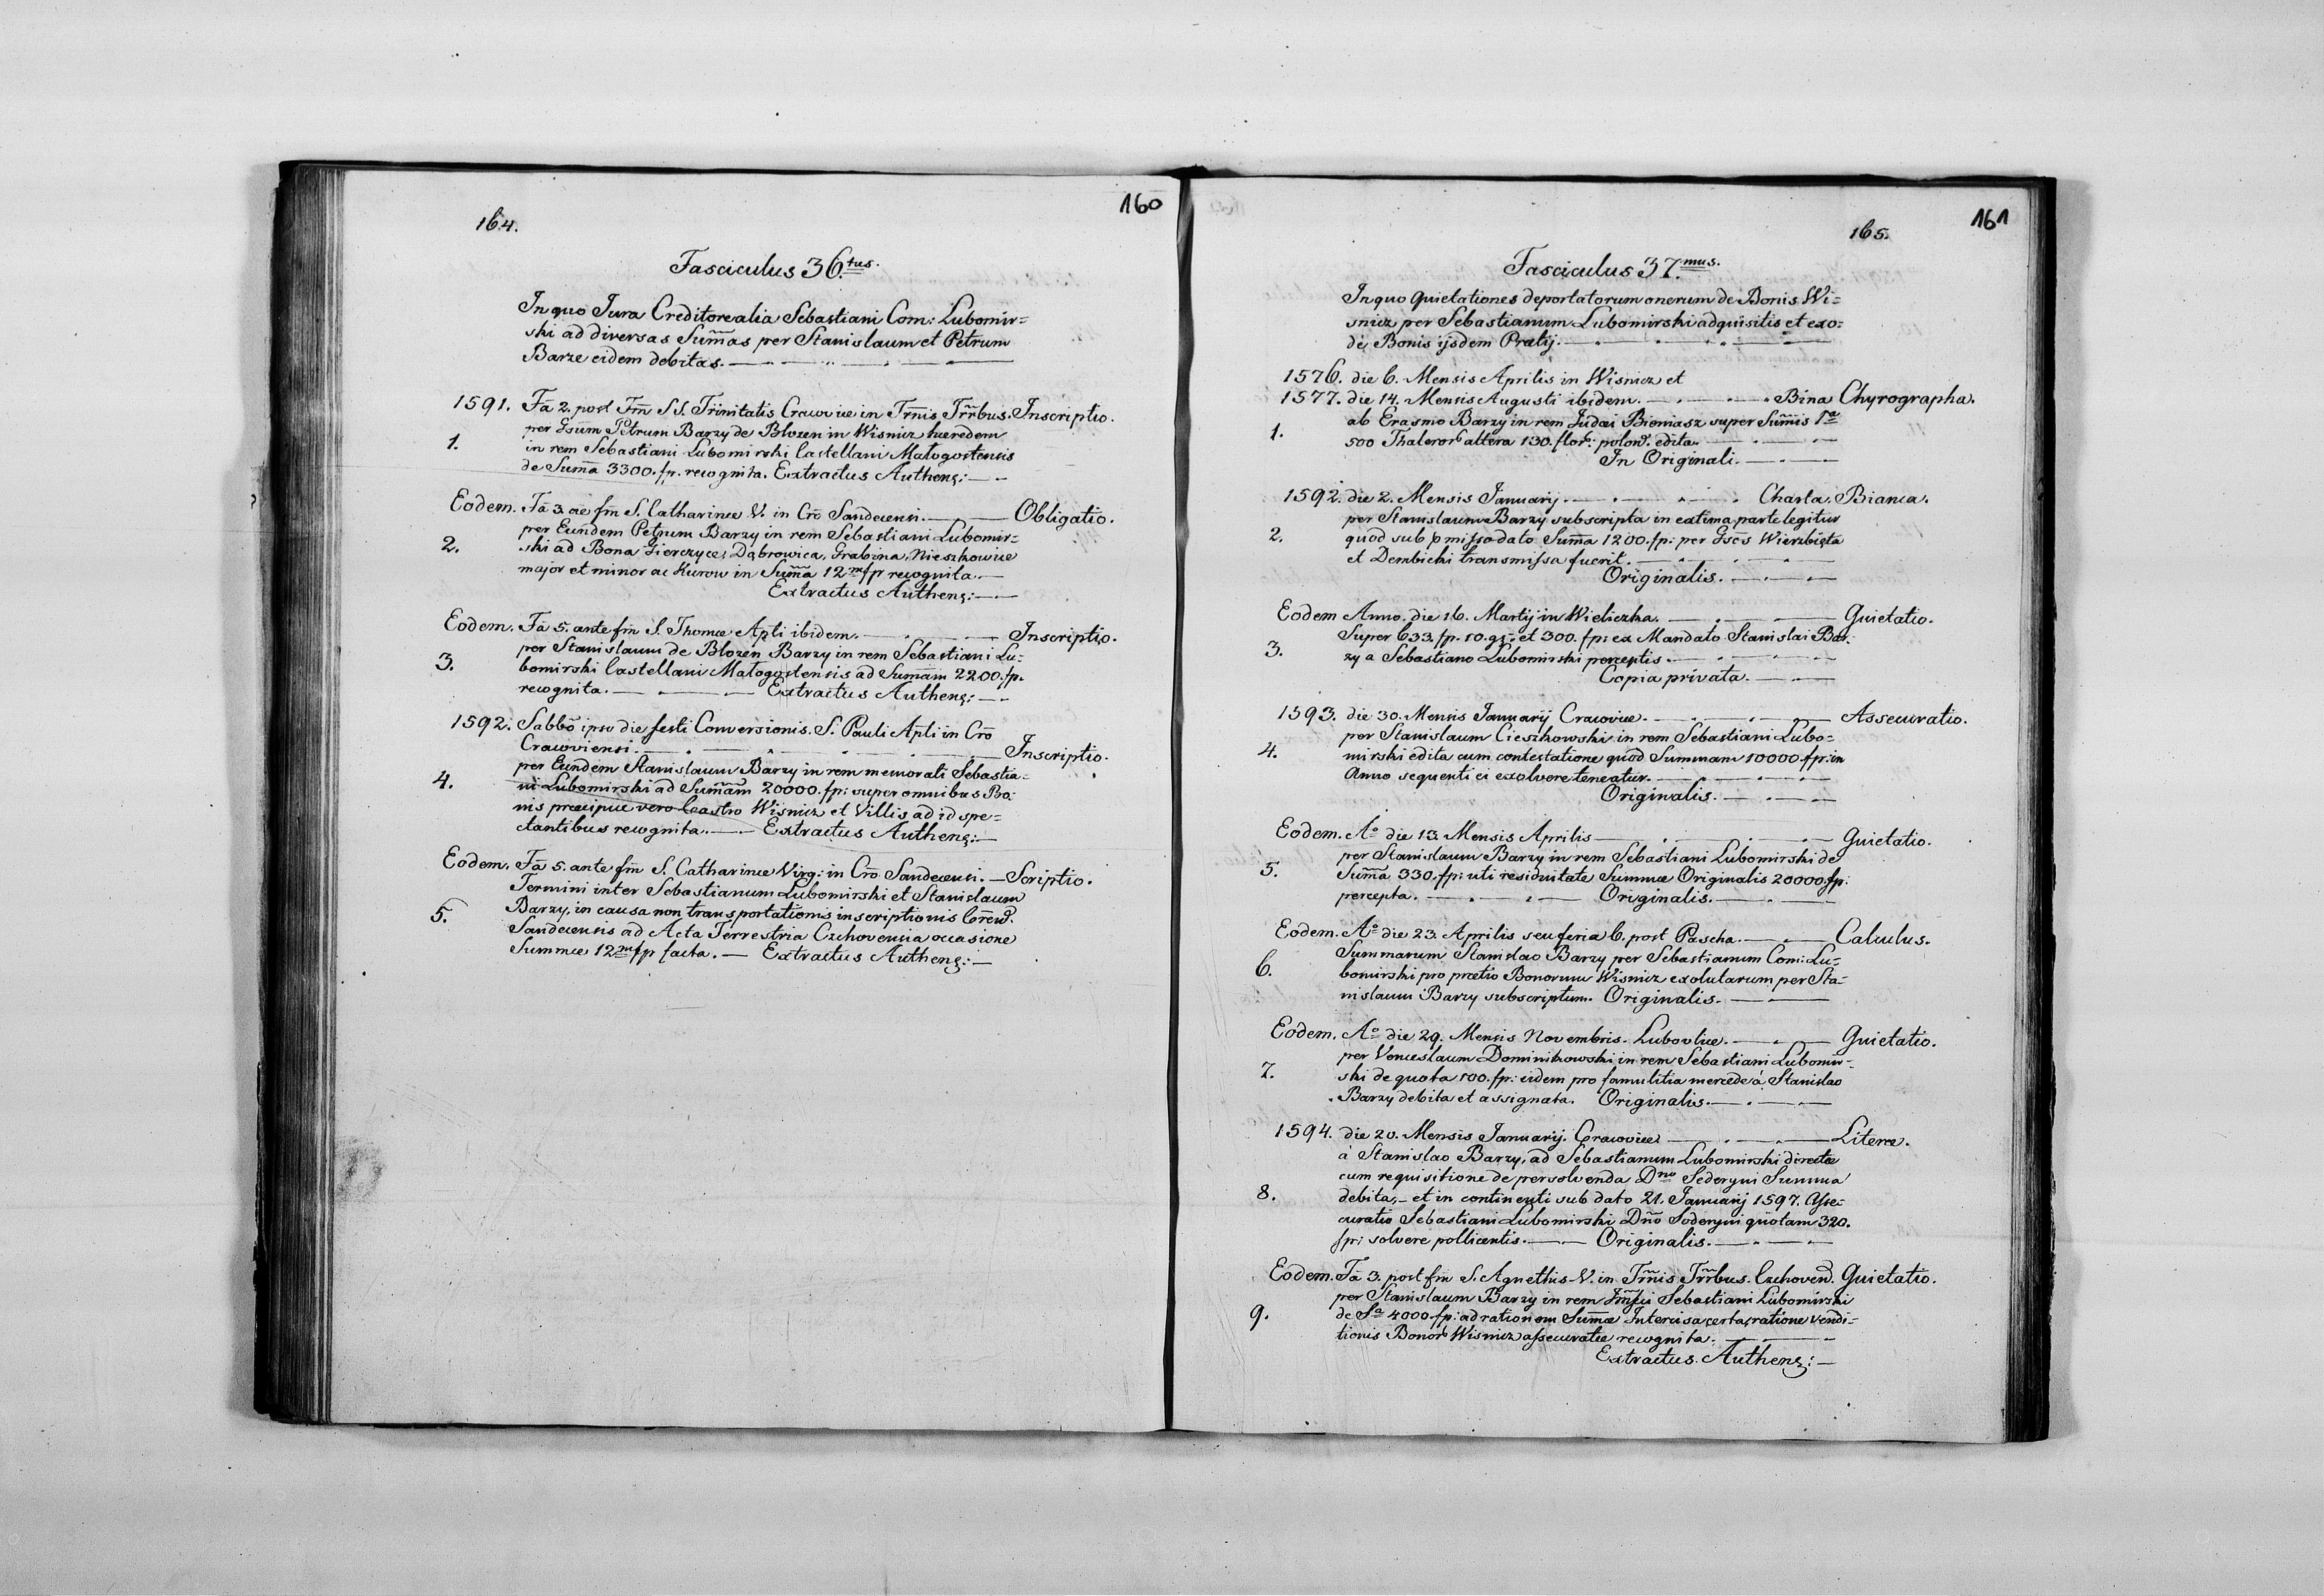 160
164.
Fasciculus 36.tus.
In quo Jura Creditorealia Sebastiani Com: Lubomir=
ski ad diversas Sum̃as per Stanislaum et Petrum
Barze eidem debitas.
1591. F̃a 2. post F̃m S.S. Trinitatis Cracoviæ in Tr̃nis Tr̃rbus. Inscriptio.
per Gsum Petrum Barzy de Blozen in Wisnicz hæredem
1. in rem Sebastiani Lubomirski Castellani Małogostensis
de Sum̃a 3300. fp. recognita. Extractus Authen:
Eodem. F̃a 3. ae f̃m S. Catharinæ V. in Crõ Sandecensi. Obligatio.
per Eundem Petrum Barzy in rem Sebastiani Lubomir=
2. ski ad Bona Gierczyce, Dąbrowica, Grabina, Nieszkowice
major et minor ac Kurow in Sum̃a 12m fp recognita.
Extractus Authen:
Eodem. F̃a 5. ante f̃m S. Thomæ Apli ibidem. Inscriptio.
per Stanislaum de Blozen Barzy in rem Sebastiani Lu=
3. bomirski Castellani Małogostensis ad Sum̃am 2200. fp.
recognita. Extractus Authen:
1592. Sabbõ ipso die festi Conversionis S. Pauli Apli in Crõ
Cracoviensi. Inscriptio.
per Eundem Stanislaum Barzy in rem memorati Sebastia=
4. ni Lubomirski ad Sum̃am 20000. fp: super omnibus Bo=
nis præcipue vero Castro Wisnicz et Villis ad id spe=
ctantibus recognita. Extractus Authen:
Eodem. F̃a 5. ante f̃m S. Catharinæ Virg: in Crõ Sandecensi. Scriptio.
Termini inter Sebastianum Lubomirski et Stanislaum
5. Barzy, in causa non transportationis inscriptionis
Sandecensis ad Acta Terrestria Czchovensia occasione
Summæ 12m fp facta. Extractus Authen:
161
165.
Fasciculus 37.mus.
In quo Quietationes deportatorum onerum de Bonis Wi=
snicz per Sebastianum Lubomirski adquisitis et exo=
de, Bonis ijsdem Prætij.
1576. die 6. Mensis Aprilis in Wisnicz et
1577. die 14. Mensis Augusti ibidem. Bina Chyrographa.
1. ab Erasmo Barzy in rem Judæi Bieniasz super Sum̃is 1a
500 Thaleror altera 130. flor: polon. edita.
In Originali.
1592. die 2. Mensis Januarij. Charta Bianca.
per Stanislaum Barzy subscripta in extima parte legitur
2. quod sub p̃misso dato Sum̃a 1200. fp: per Gsẽs Wierzbięta
et Dembicki transmissa fuerit.
Originalis.
Eodem Anno. die 16. Martij in Wieliczka. Quietatio.
Super 633. fp. 10. gr: et 300. fp: ex Mandato Stanislai Bar=
3. zy a Sebastiano Lubomirski perceptis.
Copia privata.
1593. die 30. Mensis Januarij Cracoviæ. Assecuratio.
per Stanislaum Cieszkowski in rem Sebastiani Lubo=
4. mirski edita cum contestatione quod Summam 10000 fp: in
Anno sequenti ei exolvere teneatur.
Originalis.
Eodem. Ao die 13. Mensis Aprilis Quietatio.
per Stanislaum Barzy in rem Sebastiani Lubomirski de
5. Sum̃a 330. fp: uti residuitate Summæ Originalis 20000. fp:
percepta. Originalis.
Eodem. Ao die 23. Aprilis seu feria 6. post Pascha. Calculus.
Summarum Stanislao Barzy per Sebastianum Com: Lu=
6. bomirski pro prætio Bonorum Wisnicz exolutarum per Sta=
nislaum Barzy subscriptum. Originalis.
Eodem. Ao die 29. Mensis Novembris. Lubovliæ. Quietatio.
per Venceslaum Dominikowski in rem Sebastiani Lubomir=
7. ski de quota 100. fp: eidem pro famulitia mercede à Stanislao
Barzy debita et assignata. Originalis.
1594. die 20. Mensis Januarij. Cracoviæ Literæ.
à Stanislao Barzy, ad Sebastianum Lubomirski directæ
cum requisitione de persolvenda Dno Sederyni Summa
8. debita, et in continenti sub dato 21. Januarij 1597. Asse=
curatio Sebastiani Lubomirski Dño Soderyni quotam 320.
fp: solvere pollicentis. Originalis.
Eodem. F̃a 3. post f̃m S. Agnethis V. in Tr̃nis Tr̃rbus. Czchoven. Quietatio.
per Stanislaum Barzy in rem Sebastiani Lubomirski
9. de Sa 4000 fp: ad rationem Sum̃æ Intercisa certa, ratione vendi=
tionis Bonor Wisnicz assecuratæ recognita.
Extractus. Authen: